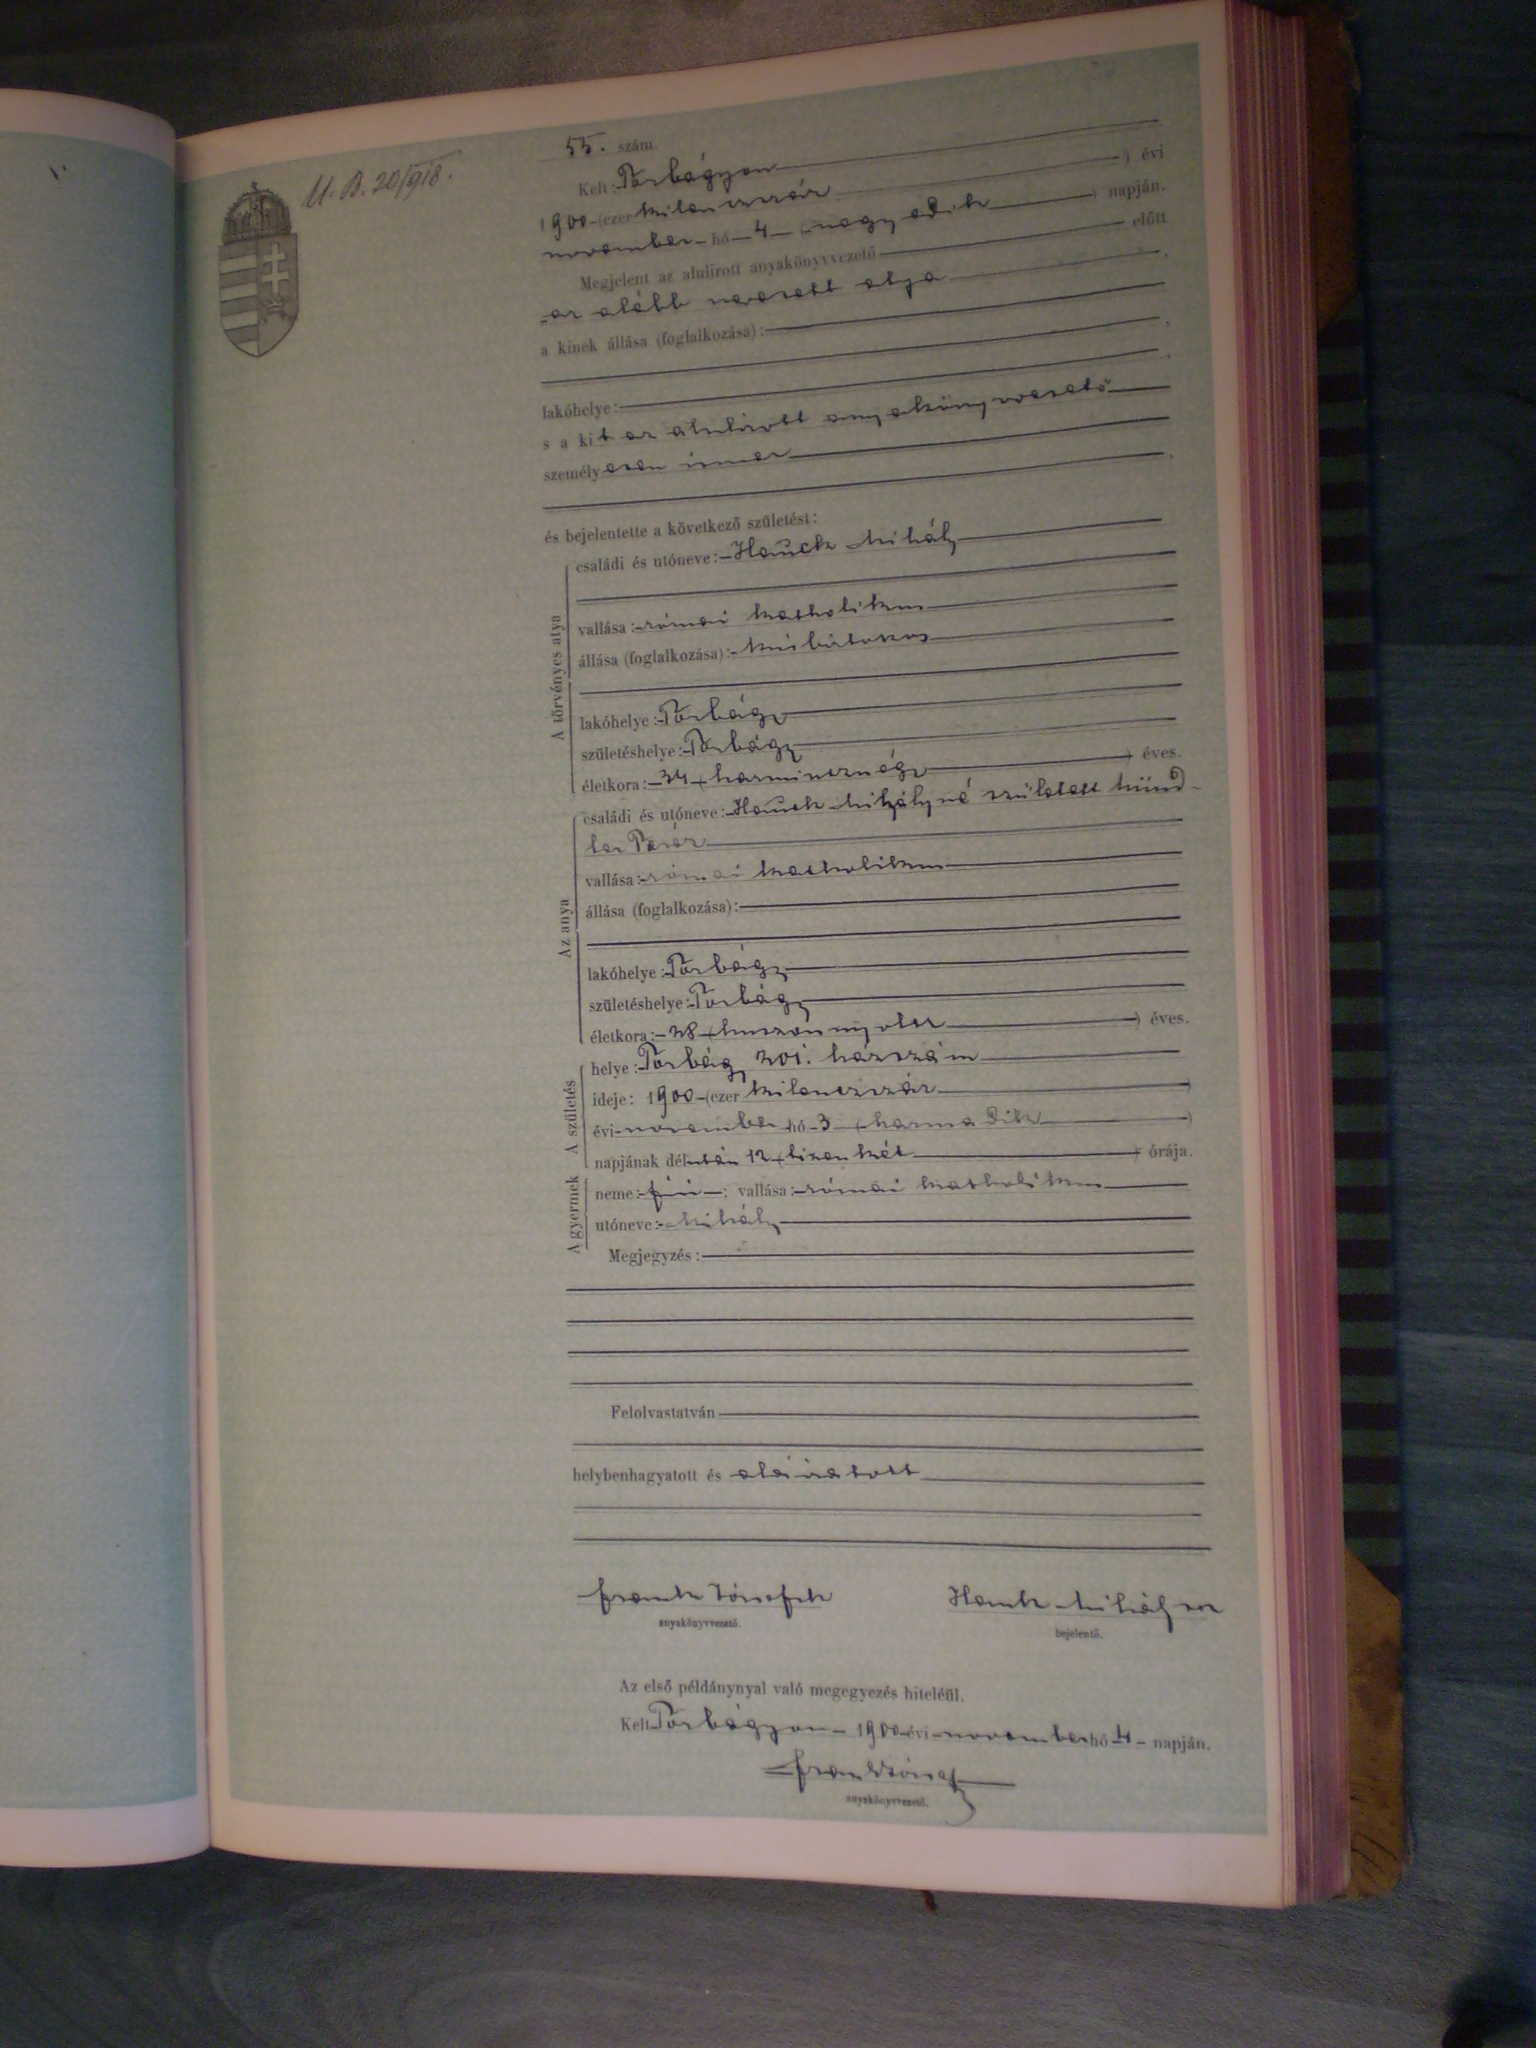 U. B. 20/918.
55. szám.
Kelt: Torbágyon
1900 (ezer kilenczszáz) évi
november hó 4 (negyedik) napján.
Megjelent az alulirott anyakönyvvezető előtt
az alább nevezett atya
a kinek állása (foglalkozása):
lakóhelye:
s a kit az alulirott anyakönyvvezető
személyesen ismer
és bejelentette a következő születést:
A törvényes atya
családi és utóneve: Hauck Mihály
vallása: római katholikus
állása (foglalkozása): kisbirtokos
lakóhelye: Torbágy
születéshelye: Torbágy
életkora: 34 (harmincznégy) éves.
Az anya
családi és utóneve: Hauck Mihályné született
ler Teréz
vallása: római katholikus
állása (foglalkozása):
lakóhelye: Torbágy
születéshelye: Torbágy
életkora: 28 (huszonnyolcz) éves.
A születés
helye: Torbágy 201. házszám
ideje: 1900 (ezer kilenczszáz)
évi november hó 3 (harmadik)
napjának délután 12 (tizenkét) órája.
A gyermek
neme: fiú; vallása: római katholikus
utóneve: Mihály
Megjegyzés:
Felolvastatván
helybenhagyatott és aláiratott
Frank József anyakönyvvezető.
Hauck Mihály bejelentő.
Az első példánynyal való megegyezés hiteléül.
Kelt Torbágyon 1900 évi november hó 4 napján.
Frank József
anyakönyvvezető.